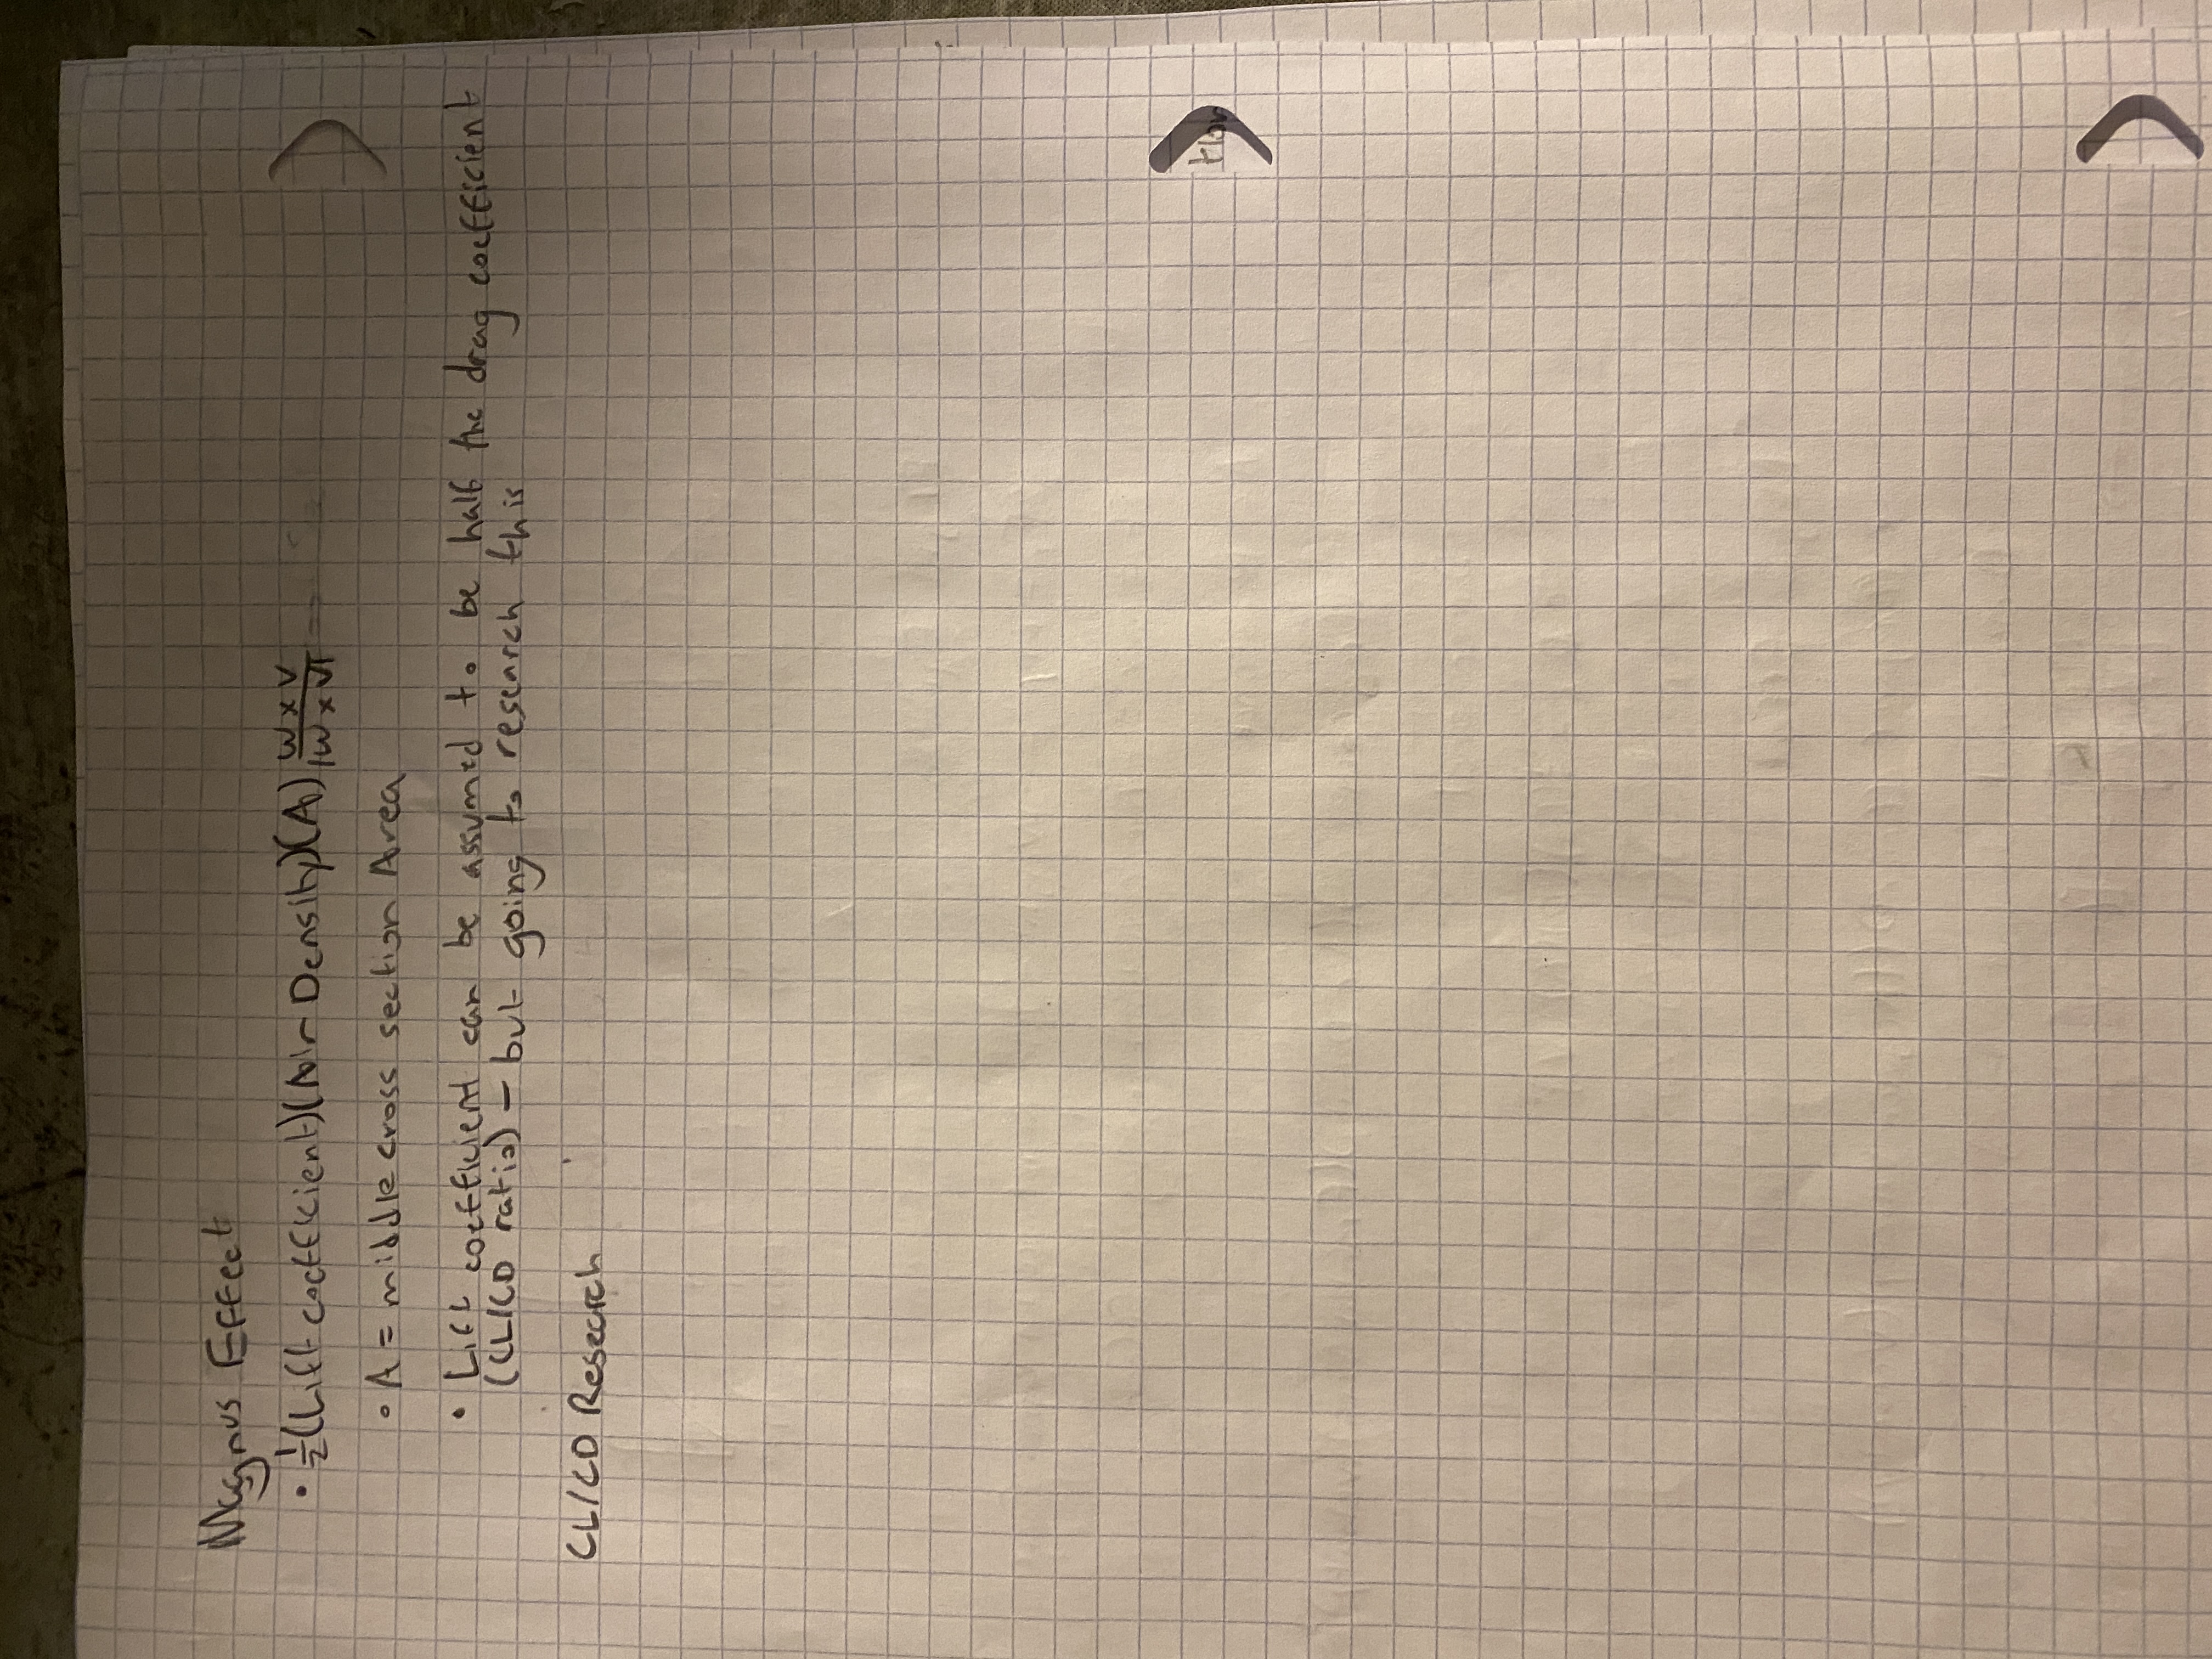 Magnus Effect
• 1/2(Lift coefficient)(Air Density)(A) w x v / |w x v|
• A = middle cross section Area
• Lift coefficient can be assumed to be half the drag coefficient
(CL/CD ratio) – but going to research this
CL/CD Research